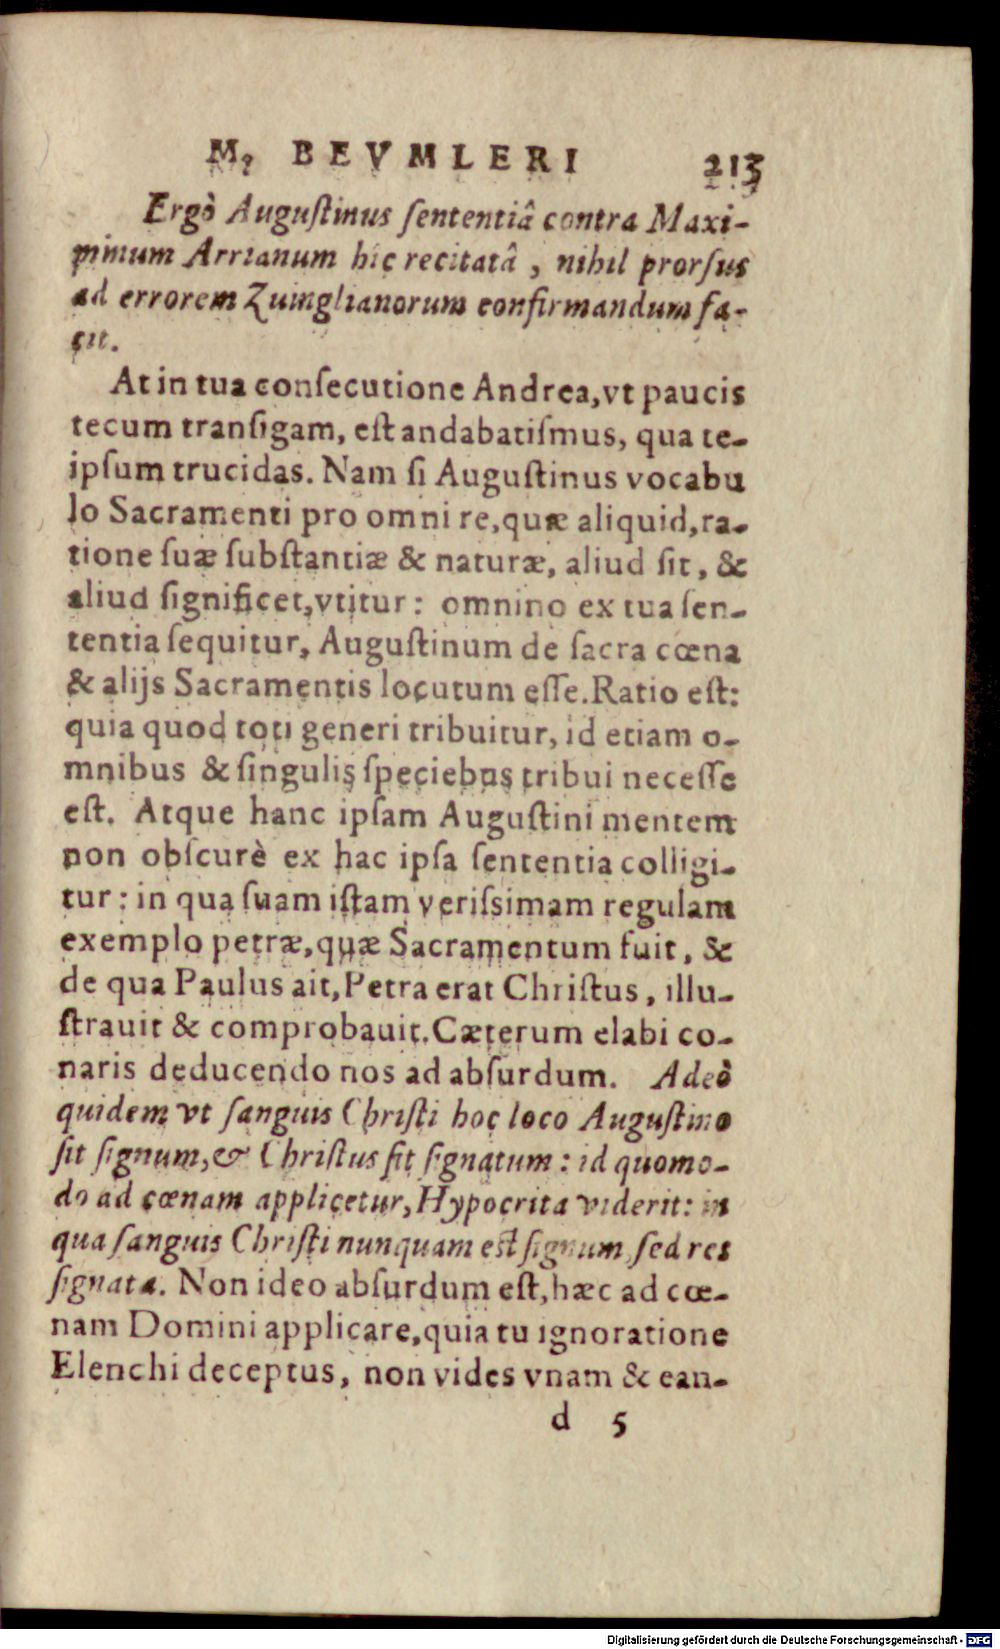 M. BEVMLERI 213
Ergò Auguſtinus ſententiâ contra Maxi-
minum Arrianum hic recitatâ, nihil prorſus
ad errorem Zuinglianorum confirmandum fa-
cit.
At in tua conſecutione Andrea, vt paucis
tecum tranſigam, eſt andabatiſmus, qua te-
ipſum trucidas. Nam ſi Auguſtinus vocabu
lo Sacramenti pro omni re, quæ aliquid, ra-
tione ſuæ ſubſtantiæ & naturæ, aliud ſit, &
aliud ſignificet, vtitur: omnino ex tua ſen-
tentia ſequitur, Auguſtinum de ſacra cœna
& alijs Sacramentis locutum eſſe. Ratio eſt:
quia quod toti generi tribuitur, id etiam o-
mnibus & ſingulis ſpeciebus tribui neceſſe
eſt. Atque hanc ipſam Auguſtini mentem
non obſcurè ex hac ipſa ſententia colligi-
tur: in qua ſuam iſtam veriſsimam regulam
exemplo petræ, quæ Sacramentum fuit, &
de qua Paulus ait, Petra erat Chriſtus, illu-
ſtrauit & comprobauit. Cæterum elabi co-
naris deducendo nos ad abſurdum. Adeò
quidem vt ſanguis Chriſti hoc loco Auguſtino
ſit ſignum, & Chriſtus ſit ſignatum: id quomo-
do ad cœnam applicetur, Hypocrita viderit: in
qua ſanguis Chriſti nunquam eſt ſignum, ſed res
ſignata. Non ideo abſurdum eſt, hæc ad cœ-
nam Domini applicare, quia tu ignoratione
Elenchi deceptus, non vides vnam & ean-
d 5
Digitalisierung gefördert durch die Deutsche Forschungsgemeinschaft - DFG